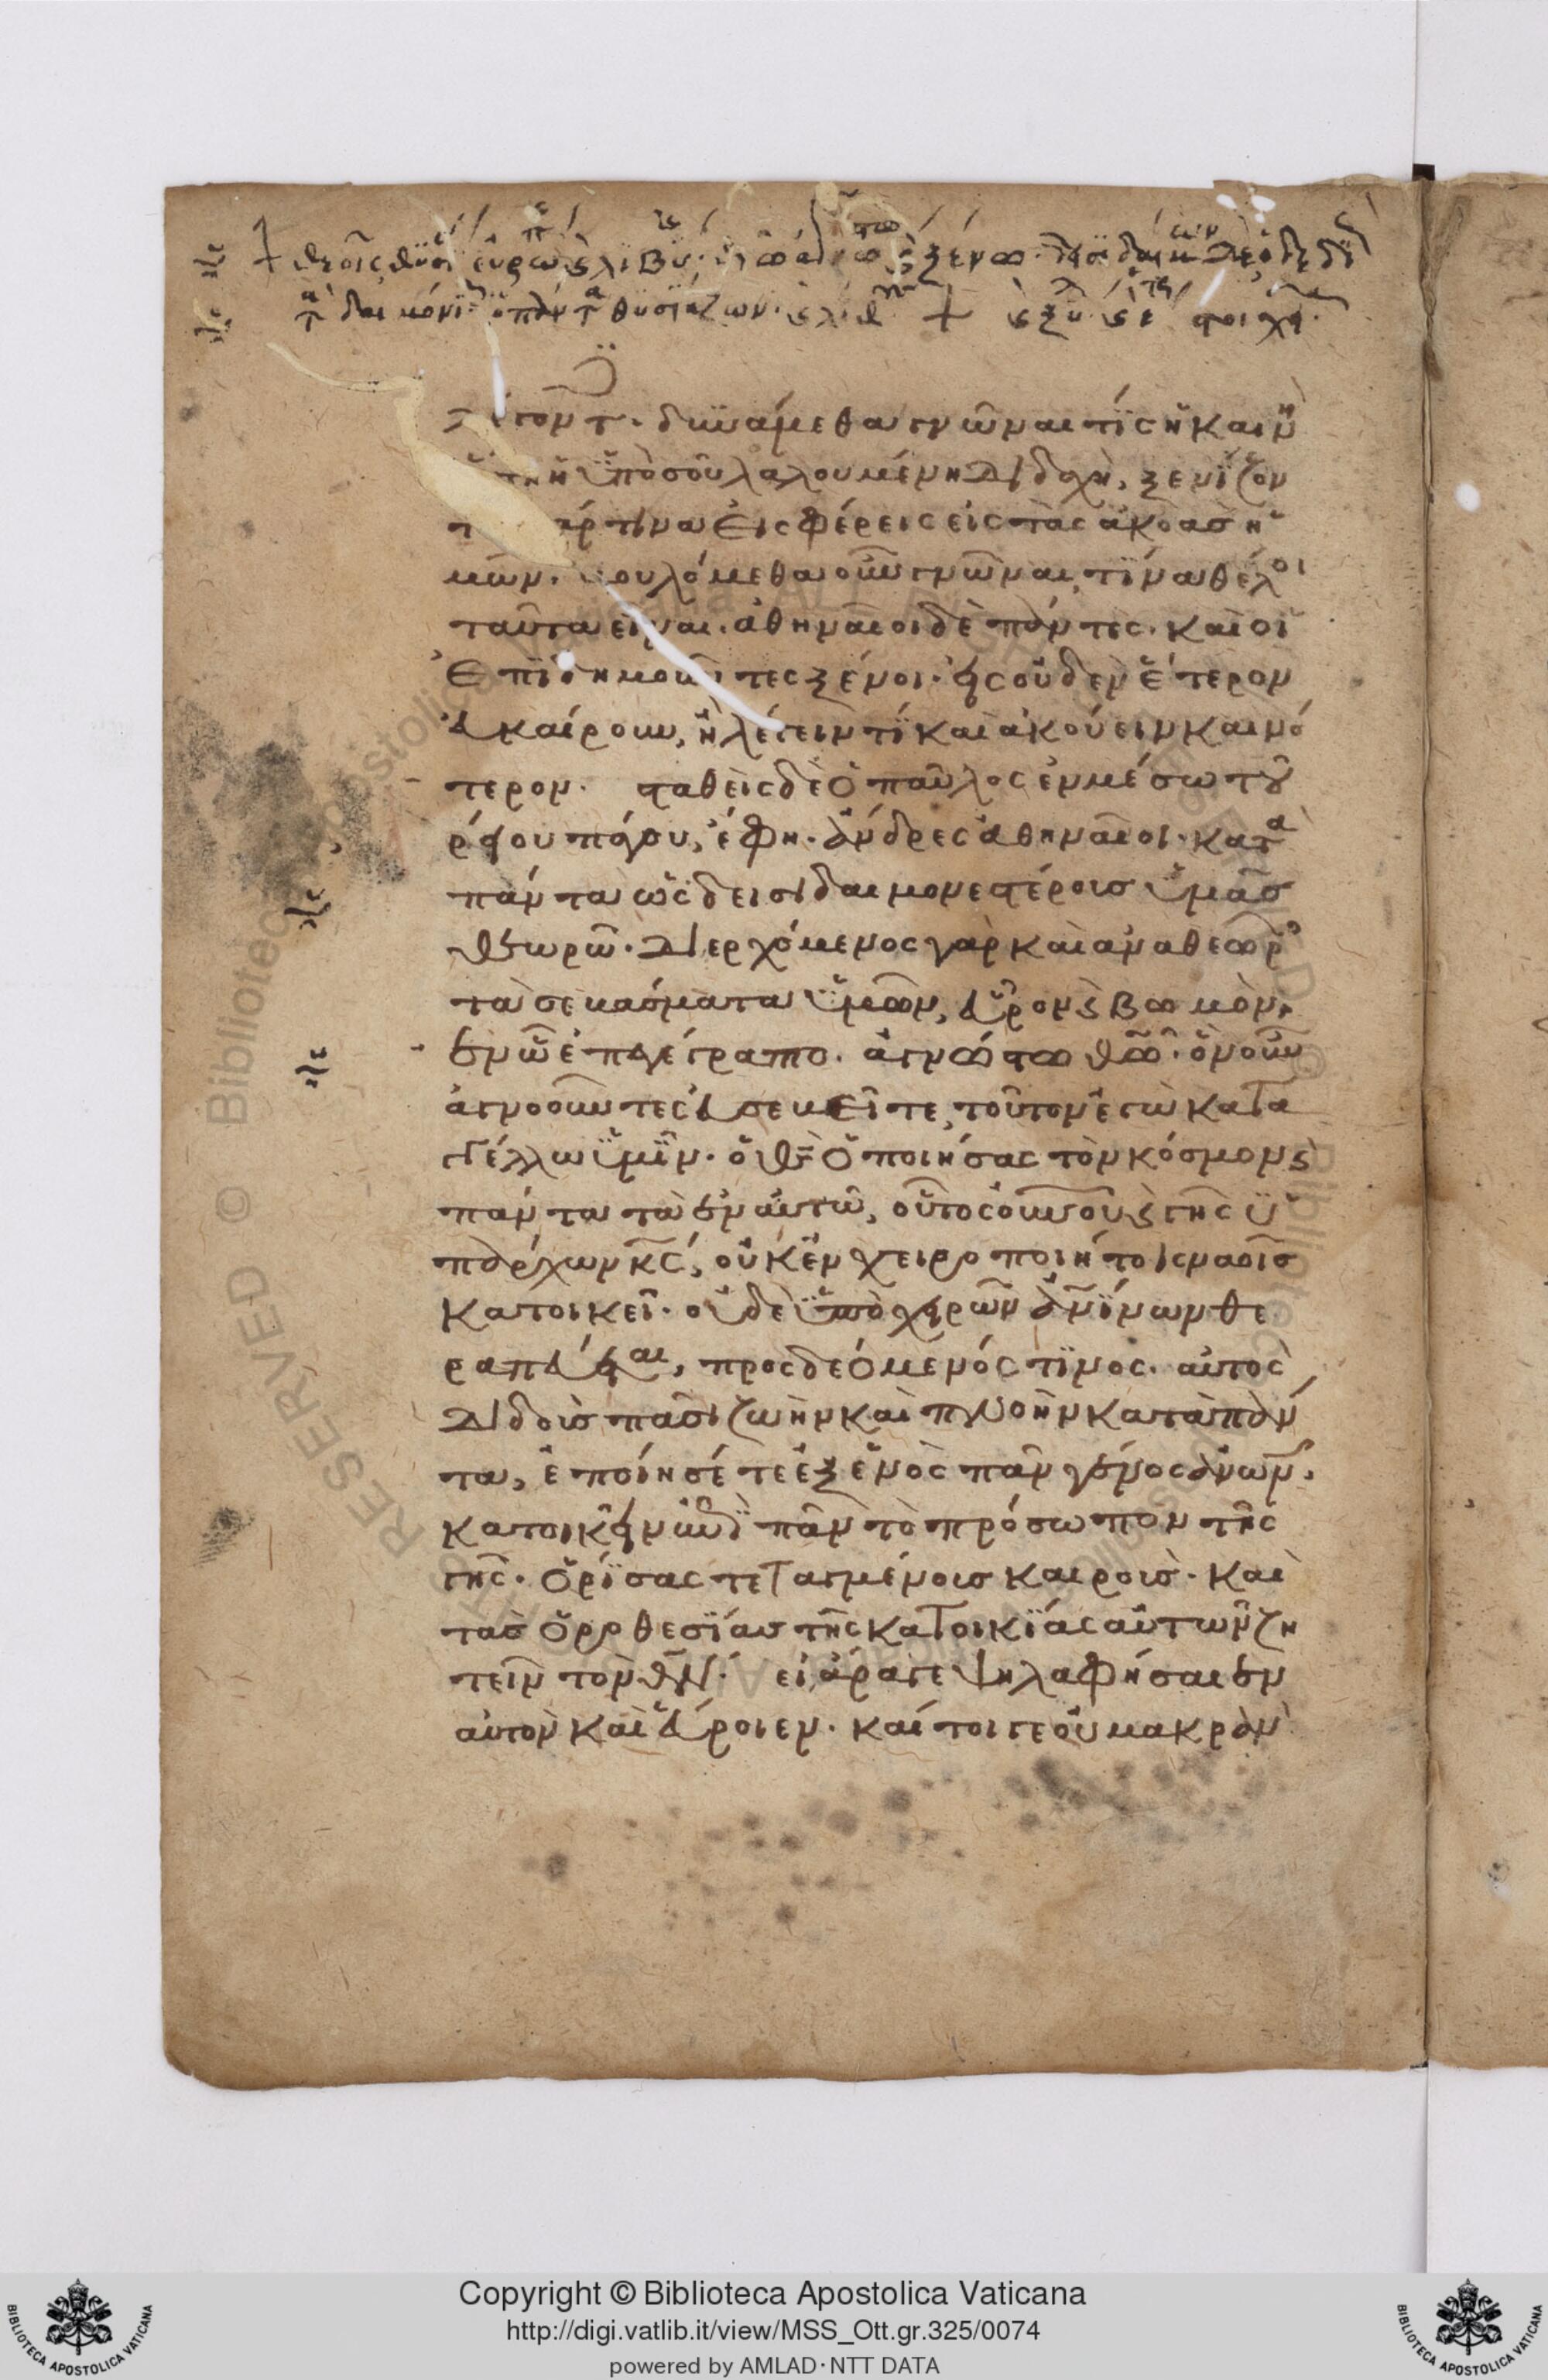 λέγοντ. δυνάμεθα γνῶναι τίς ἡ καιν
αὕτη ἡ ὑπὸ σοῦ λαλουμένη διδαχὴ, ξενίζον
τ γάρ τινα εἰσφέρεις εἰς τὰς ἀκοὰσ ἡ
μῶν. βουλόμεθα οὖν γνῶναι, τίνα θέλοι
ταῦτα εἶναι. ἀθηναῖοι δὲ πάντες. καὶ οἱ
ἐπιδημοῦντες ξένοι. εἰς οὐδὲν ἕτερον
εὐκαίρουν, ἢ λέγειν τί καὶ ἀκούειν και νό
τερον. σταθεὶς δὲ ὁ παῦλος ἐν μέσω τοῦ
ρείου πάγου, ἔφη. ἄνδρες ἀθηναῖοι. κατα
πάντα ὡς δεισιδαιμονεστέροισ ὑμᾶσ
θεωρῶ. διερχόμενος γὰρ καὶ ἀναθεωρ
τὰ σεβάσματα ὑμῶν, εὗρον ϛ βωμὸν,
ἐν ᾧ ἐπεγέγραπτο. ἀγνώστω θῶ. ὃν οὖν
ἀγνοοῦντες εὐσεβεῖτε, τοῦτον ἐγὼ κατα
γγέλλω ὑμῖν. ὁ θς ὁ ποιήσας τὸν κόσμον ϛ
πάντα τὰ ἐν αὐτῶ, οὗτος οὐνου ϛ γῆς ὑ
πάρχων κς, οὐκ ἐν χειροποιήτοις ναοῖσ
κατοικεῖ. οὐδὲ ὑπὸ χειρῶν ἀνίνων θε
ραπεύεται, προσδεόμενός τινος. αὐτὸς
διδοὺσ πᾶσι ζωὴν καὶ πνοὴν κατὰ πάν
τα, ἐποίησέ τε ἐξ ἑνὸς πᾶν γένος ἀνων,
κατοικεῖν ἐπὶ πᾶν τὸ πρόσωπον τῆς
γῆς. ὁρίσας τεταγμένουσ καιροὺσ. καὶ
τὰσ ὁροθεσίασ τῆς κατοικίας αὐτῶν ζη
τεῖν τὸν θν. εἰ ἄραγε ψηλαφήσαιεν
αὐτὸν καὶ εὕροιεν. καί τοι γε οὐ μακρὰν
Copyright © Biblioteca Apostolica Vaticana
http://digi.vatlib.it/view/MSS_Ott.gr.325/0074
powered by AMLAD·NTT DATA
BIBLIOTECA APOSTOLICA VATICANA
BIBLIOTECA APOSTOLICA VATICANA